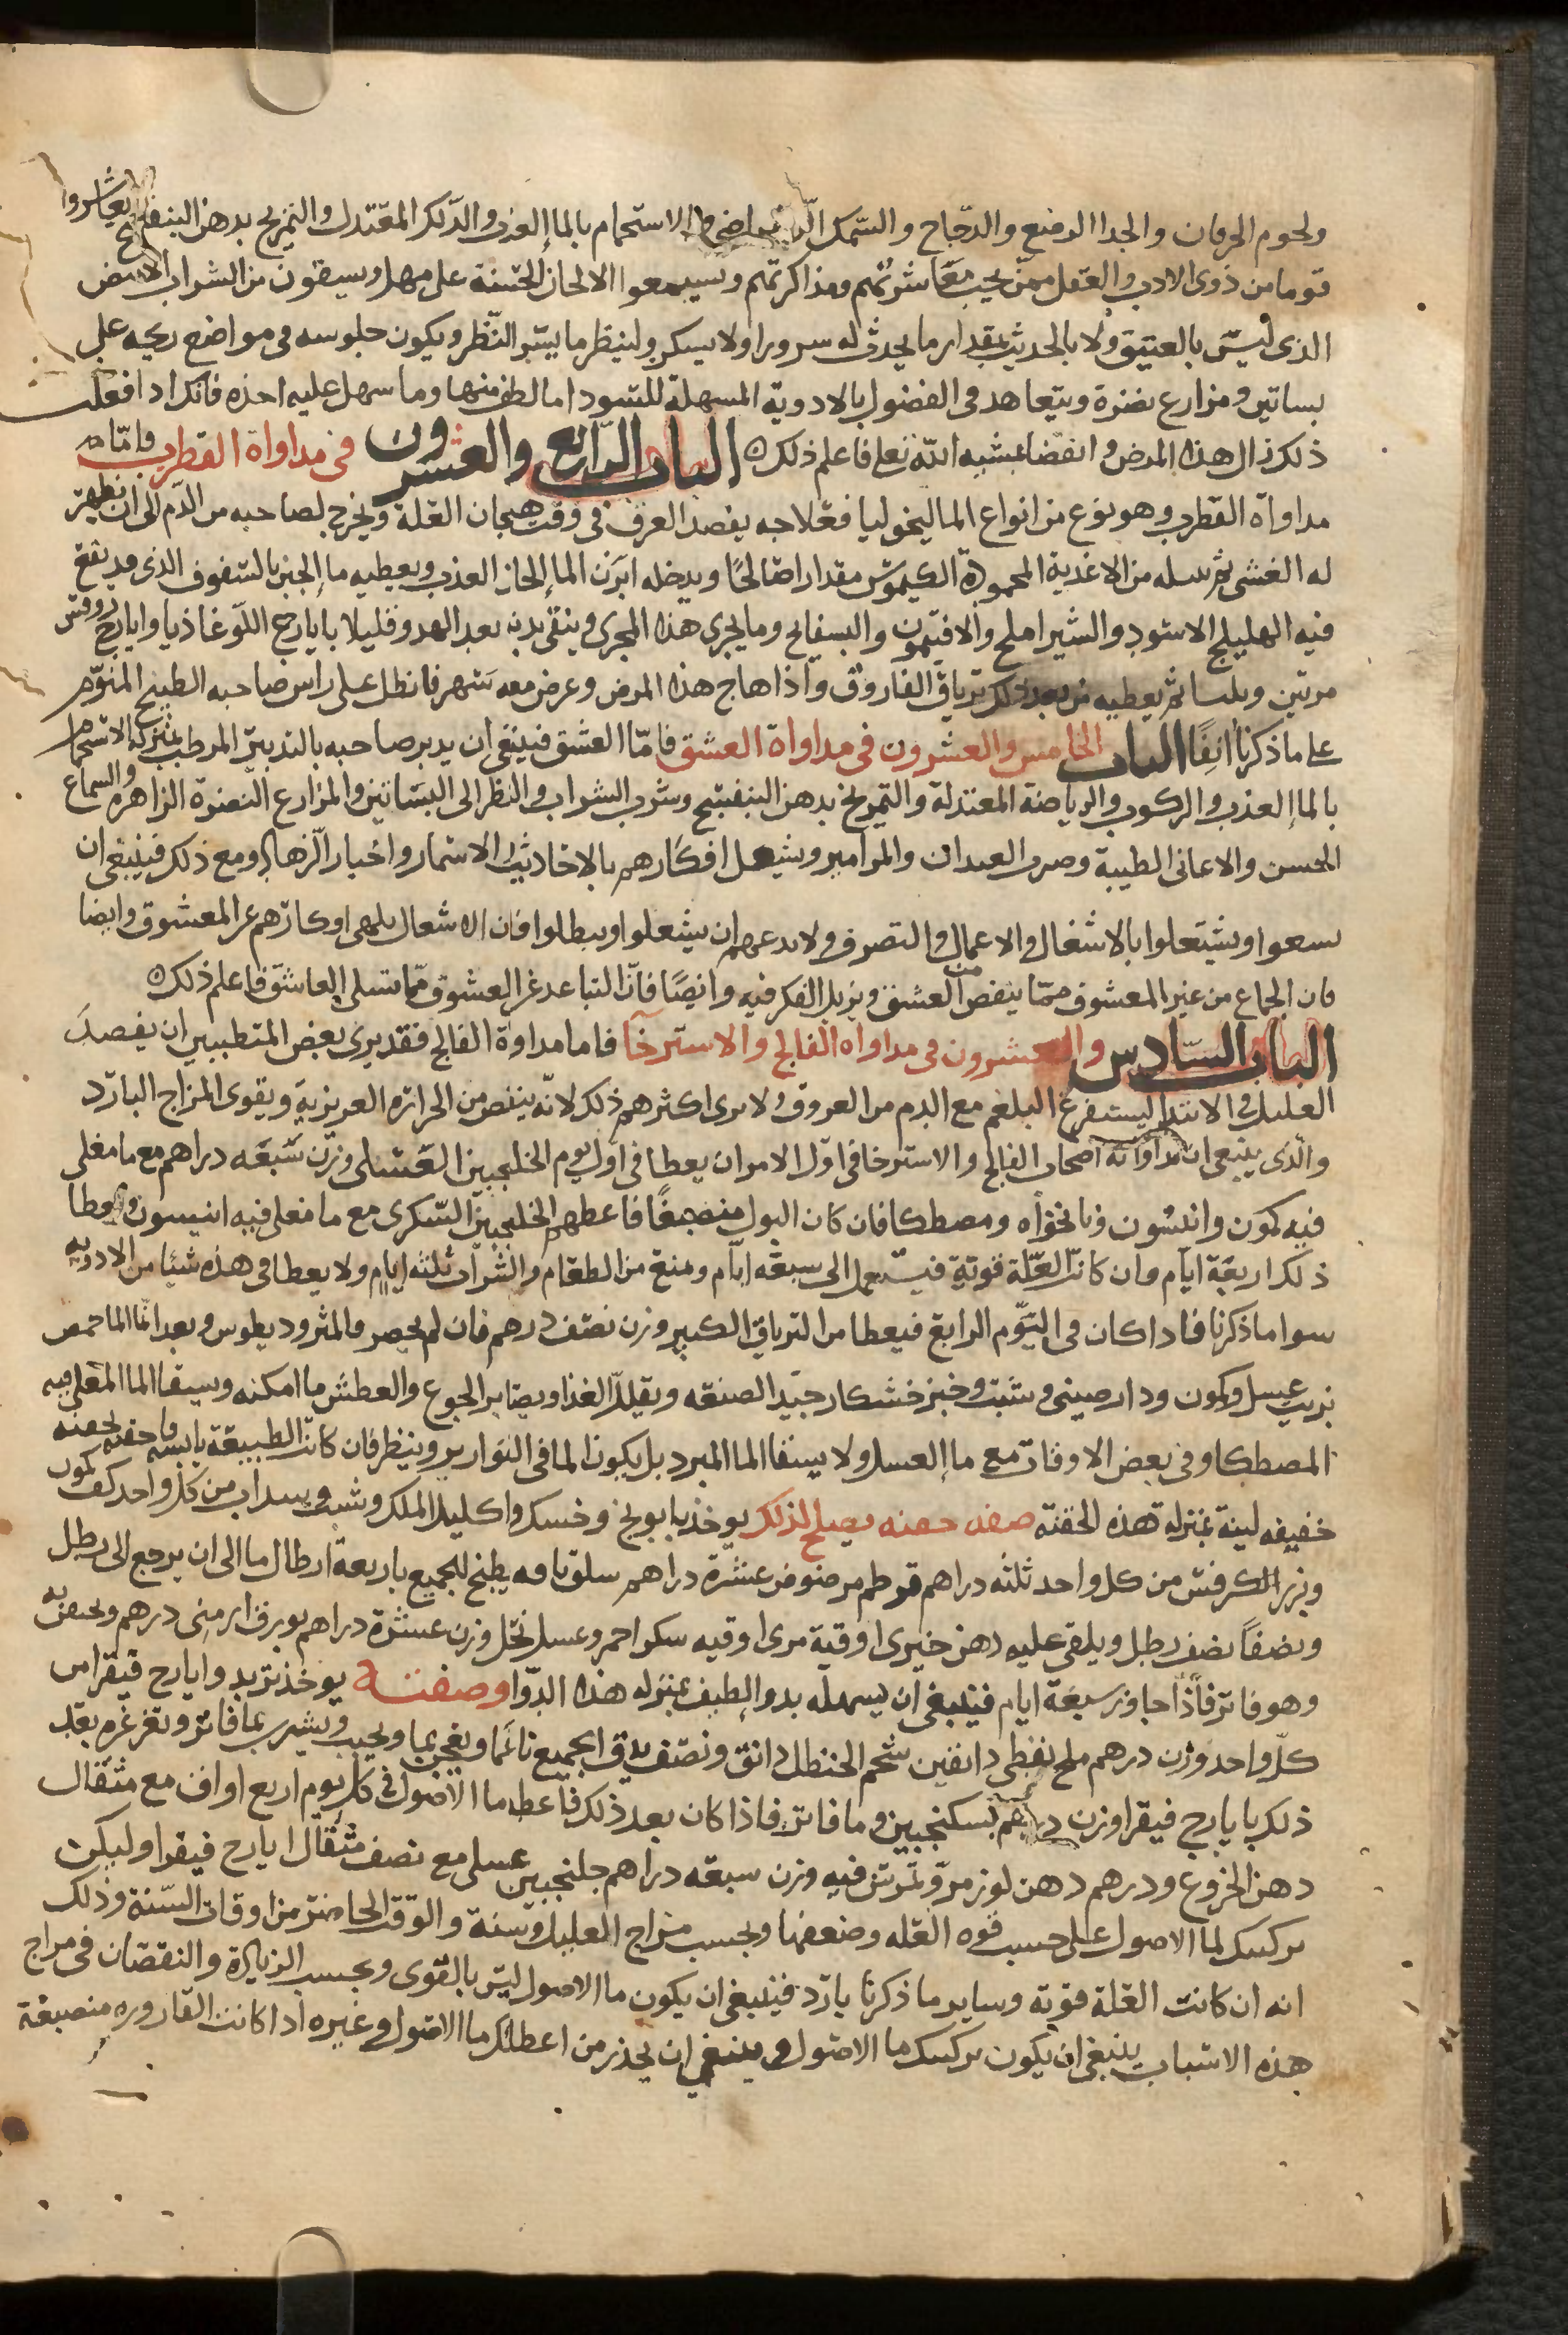 ولحوم الخرفان والجدا الرضيع والدجاج والسمك الاستحمام بالماء العذب والدلك المعتدل والتمريخ بدهن البنفسج ويعاشروا
قوما من ذوي الادب والعقل ممن يحب معاشرتهم ومذاكرتهم ويسمعوا الالحان الحسنة على مهل ويسقون من الشراب الابيض
الذي ليس بالعتيق ولا بالحديث بمقدار ما يحدث له سرورا ولا يسكر ولينظر ما يسر النظر ويكون جلوسه في مواضع ريحه على
بساتين ومزارع نضرة ويتعاهد في الفضول بالادوية المسهلة للسودا ما لطف منها وما سهل عليه اخذه فانك اذا فعلت
ذلك زال هذا المرض وانقضا بمشيه الله تعلى فاعلم ذلك ه الباب الرابع والعشرون في مداواة القطرب فاما
مداواة القطرب وهو نوع من انواع الماليخوليا فعلاجه يفصد العرق في وقت هيجان العلة ويخرج لصاحبه من الدم الى ان يظهر
له الغشي ثم يسله من الاغذية المحمودة الكيموس مقدارا صالحا ويدخله ابزن الماء الحار العذب ويعطيه ماء الجبن بالسفوف الذي قد يقع
فيه الهليلج الاسود والشيراملج والافتيمون والبسفايج وما يجري هذا المجرى وينقي بدنه بعد الهدو قليلا بايارج اللوغاذيا وايارج روفس
مرتين وثلثا ثم يعطيه من بعد ذلك ترياق الفاروق واذا هاج هذا المرض وعرض معه سهر فانطل على راس صاحبه الطبيخ المنوم
على ما ذكرنا انفا الباب الخامس والعشرون في مداواة العشق فاما العشق فينبغي ان يدبر صاحبه بالتدبير المرطب بمنزلة الاستحمام
بالماء العذب والركوب والرياضة المعتدلة والتمريخ بدهن البنفسج وشرب الشراب والنظر الى البساتين والمزارع النضرة الزاهرة والسماع
الحسن والاغاني الطيبة وضرب العيدان والمزامير ويشغل افكارهم بالاحاديث والاسمار واخبار الزهاد ومع ذلك فينبغي ان
يسعوا ويشتغلوا بالاشغال والاعمال والتصرف ولا يدعهم ان يشغلوا ويبطلوا فان الاشغال يلهي افكارهم عن المعشوق وايضا
فان الجماع من غير المعشوق مما ينقص من العشق ويزيل الفكر فيه وايضا فان التباعد عن المعشوق مما يسلي العاشق فاعلم ذلك ه
الباب السادس والعشرون في مداواة الفالج والاسترخا فاما مداواة الفالج فقد يرى بعض المتطببين ان يفصد
العليل في الابتدا ليستفرغ البلغم مع الدم من العروق ولا يرى اكثرهم ذلك لانه ينقص من الحرارة الغريزية ويقوى المزاج البارد
والذي ينبغي ان مداواته اصحاب الفالج والاسترخا في اول الامر ان يعطا في اول يوم الخلنجبين العسلي وزن سبعه دراهم مع ما مغلي
فيه كمون وانيسون ونانخواه ومصطكا فان كان البول منصبغا فاعطهم الخلنجبين السكري مع ما مغلي فيه انيسون ويعطا
ذلك اربعة ايام وان كانت العلة قوية فيستعمل الى سبعة ايام ومنع من الطعام والشراب ثلثه ايام ولا يعطا في هذه شيئا من الادويه
سوا ما ذكرنا فاذا كان في اليوم الرابع فيعطا من الترياق الكبير وزن نصف درهم فان لم يحضر فالمثروديطوس ويغدا ماء حمص
بزيت عسل وكمون ودارصيني وشبث وخبز خشكار جيد الصنعه ويقلل الغذا ويصابر الجوع والعطش ما امكنه ويسقا الما المغلي فيه
المصطكا وفي بعض الاوقات مع ماء العسل ولا يسقا الما المبرد بل يكون الما في القوارير وينظر فان كانت الطبيعة يابسه فاحقنه بحقنه
خفيفه لينة بمنزلة هذه الحقنة صفه حقنه يصلح لذلك يوخذ بابونج وخسك واكليل الملك وشبث وسداب من كل واحد كف كمون
وبزر الكرفس من كل واحد ثلثه دراهم قرطم مرضوض عشرة دراهم سلق باقه يطبخ الجميع باربعة ارطال ما الى ان يرجع الى رطل
ونصفا نصف رطل ويلقى عليه دهن خيري اوقية مري اوقيه سكر احمر وعسل نحل وزن عشرة دراهم بورق ارمني درهم ويحقن به
وهو فاتر فاذا جاوز سبعة ايام فينبغي ان يسهله بدواء لطيف بمنزله هذا الدوا وصفته يوخذ تربد وايارج فيقرا من
كل واحد وزن درهم ملح نفطي دانقين شحم الحنظل دانق ونصف يدق الجميع ناعما ويعجن بما ويحبب ويشرب بما فاتر وتغرغره بعد
ذلك بايارج فيقرا وزن درهم بسكنجبين وما فاتر فاذا كان بعد ذلك فاعطه ما الاصول في كل يوم اربع اواق مع مثقال
دهن الخروع ودرهم دهن لوز مر وتمرس فيه وزن سبعه دراهم جلنجبين عسلي مع نصف مثقال ايارج فيقرا وليكن
تركيبك لما الاصول على حسب قوه العله وضعفها وبحسب مزاج العليل وسنة والوقت الحاضر من اوقات السنة وذلك
انه ان كانت العلة قوية وساير ما ذكرنا بارد فينبغي ان يكون ما الاصول ليس بالقوى وبحسب الزيادة والنقصان في مزاج
هذه الاسباب ينبغي ان يكون تركيبك ما الاصول وينبغي ان يحذر من اعطائك ما الاصول وغيره اذا كانت القاروره منصبغة